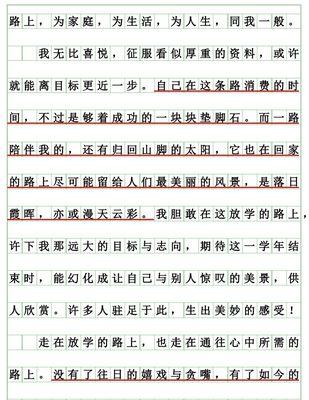 路上，为家庭，为生活，为人生，同我一般。
我无比喜悦，征服看似厚重的资料，或许
就能离目标更近一步。自己在这条路消费的时
间，不过是够着成功的一块块垫脚石。而一路
陪伴我的，还有归回山脚的太阳，它也在回家
的路上尽可能留给人们最美丽的风景，是落日
霞晖，亦或漫天云彩。我胆敢在这放学的路上，
许下我那远大的目标与志向，期待这一学年结
束时，能幻化成让自己与别人惊叹的美景，供
人欣赏。许多人驻足于此，生出美妙的感受！
走在放学的路上，也走在通往心中所需的
路上。没有了往日的嬉戏与贪嘴，有了如今的